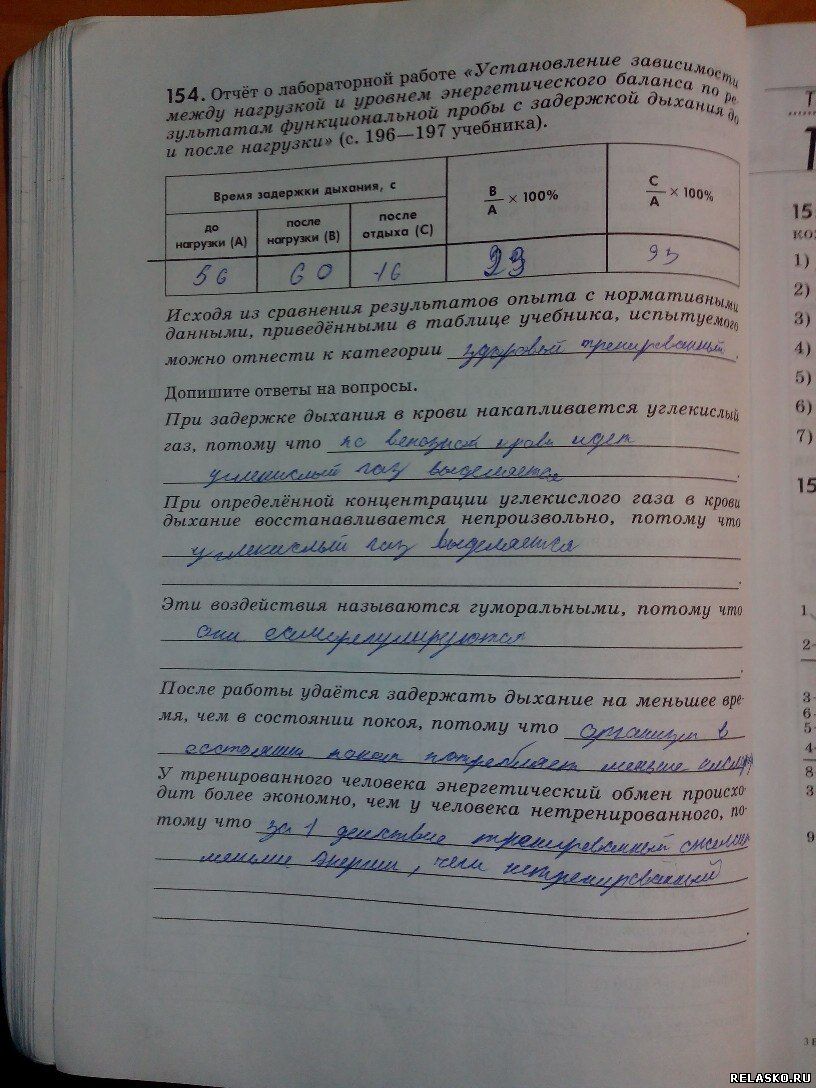 154. Отчёт о лабораторной работе «Установление зависимости
между нагрузкой и уровнем энергетического баланса по ре-
зультатам функциональной пробы с задержкой дыхания до
и после нагрузки» (с. 196—197 учебника).
Время задержки дыхания, с
B/A × 100%
C/A × 100%
до нагрузки (A)
после нагрузки (B)
после отдыха (C)
56 60 16 93
Исходя из сравнения результатов опыта с нормативными
данными, приведёнными в таблице учебника, испытуемого
можно отнести к категории здоровый тренированный.
Допишите ответы на вопросы.
При задержке дыхания в крови накапливается углекислый
газ, потому что по венозной крови идет
углекислый газ выделяется.
При определённой концентрации углекислого газа в крови
дыхание восстанавливается непроизвольно, потому что
углекислый газ выделяется
Эти воздействия называются гуморальными, потому что
они саморегулируются
После работы удаётся задержать дыхание на меньшее вре-
мя, чем в состоянии покоя, потому что организм в
состоянии покоя потребляет меньше
У тренированного человека энергетический обмен происхо-
дит более экономно, чем у человека нетренированного, по-
тому что за 1 действие тренированный
меньше энергии, чем нетренированный
Т
15
ко
1)
2)
3)
4)
5)
6)
7)
15
1
2-
3-
6-
5-
4-
8
3
9
3 В
RELASKO.RU